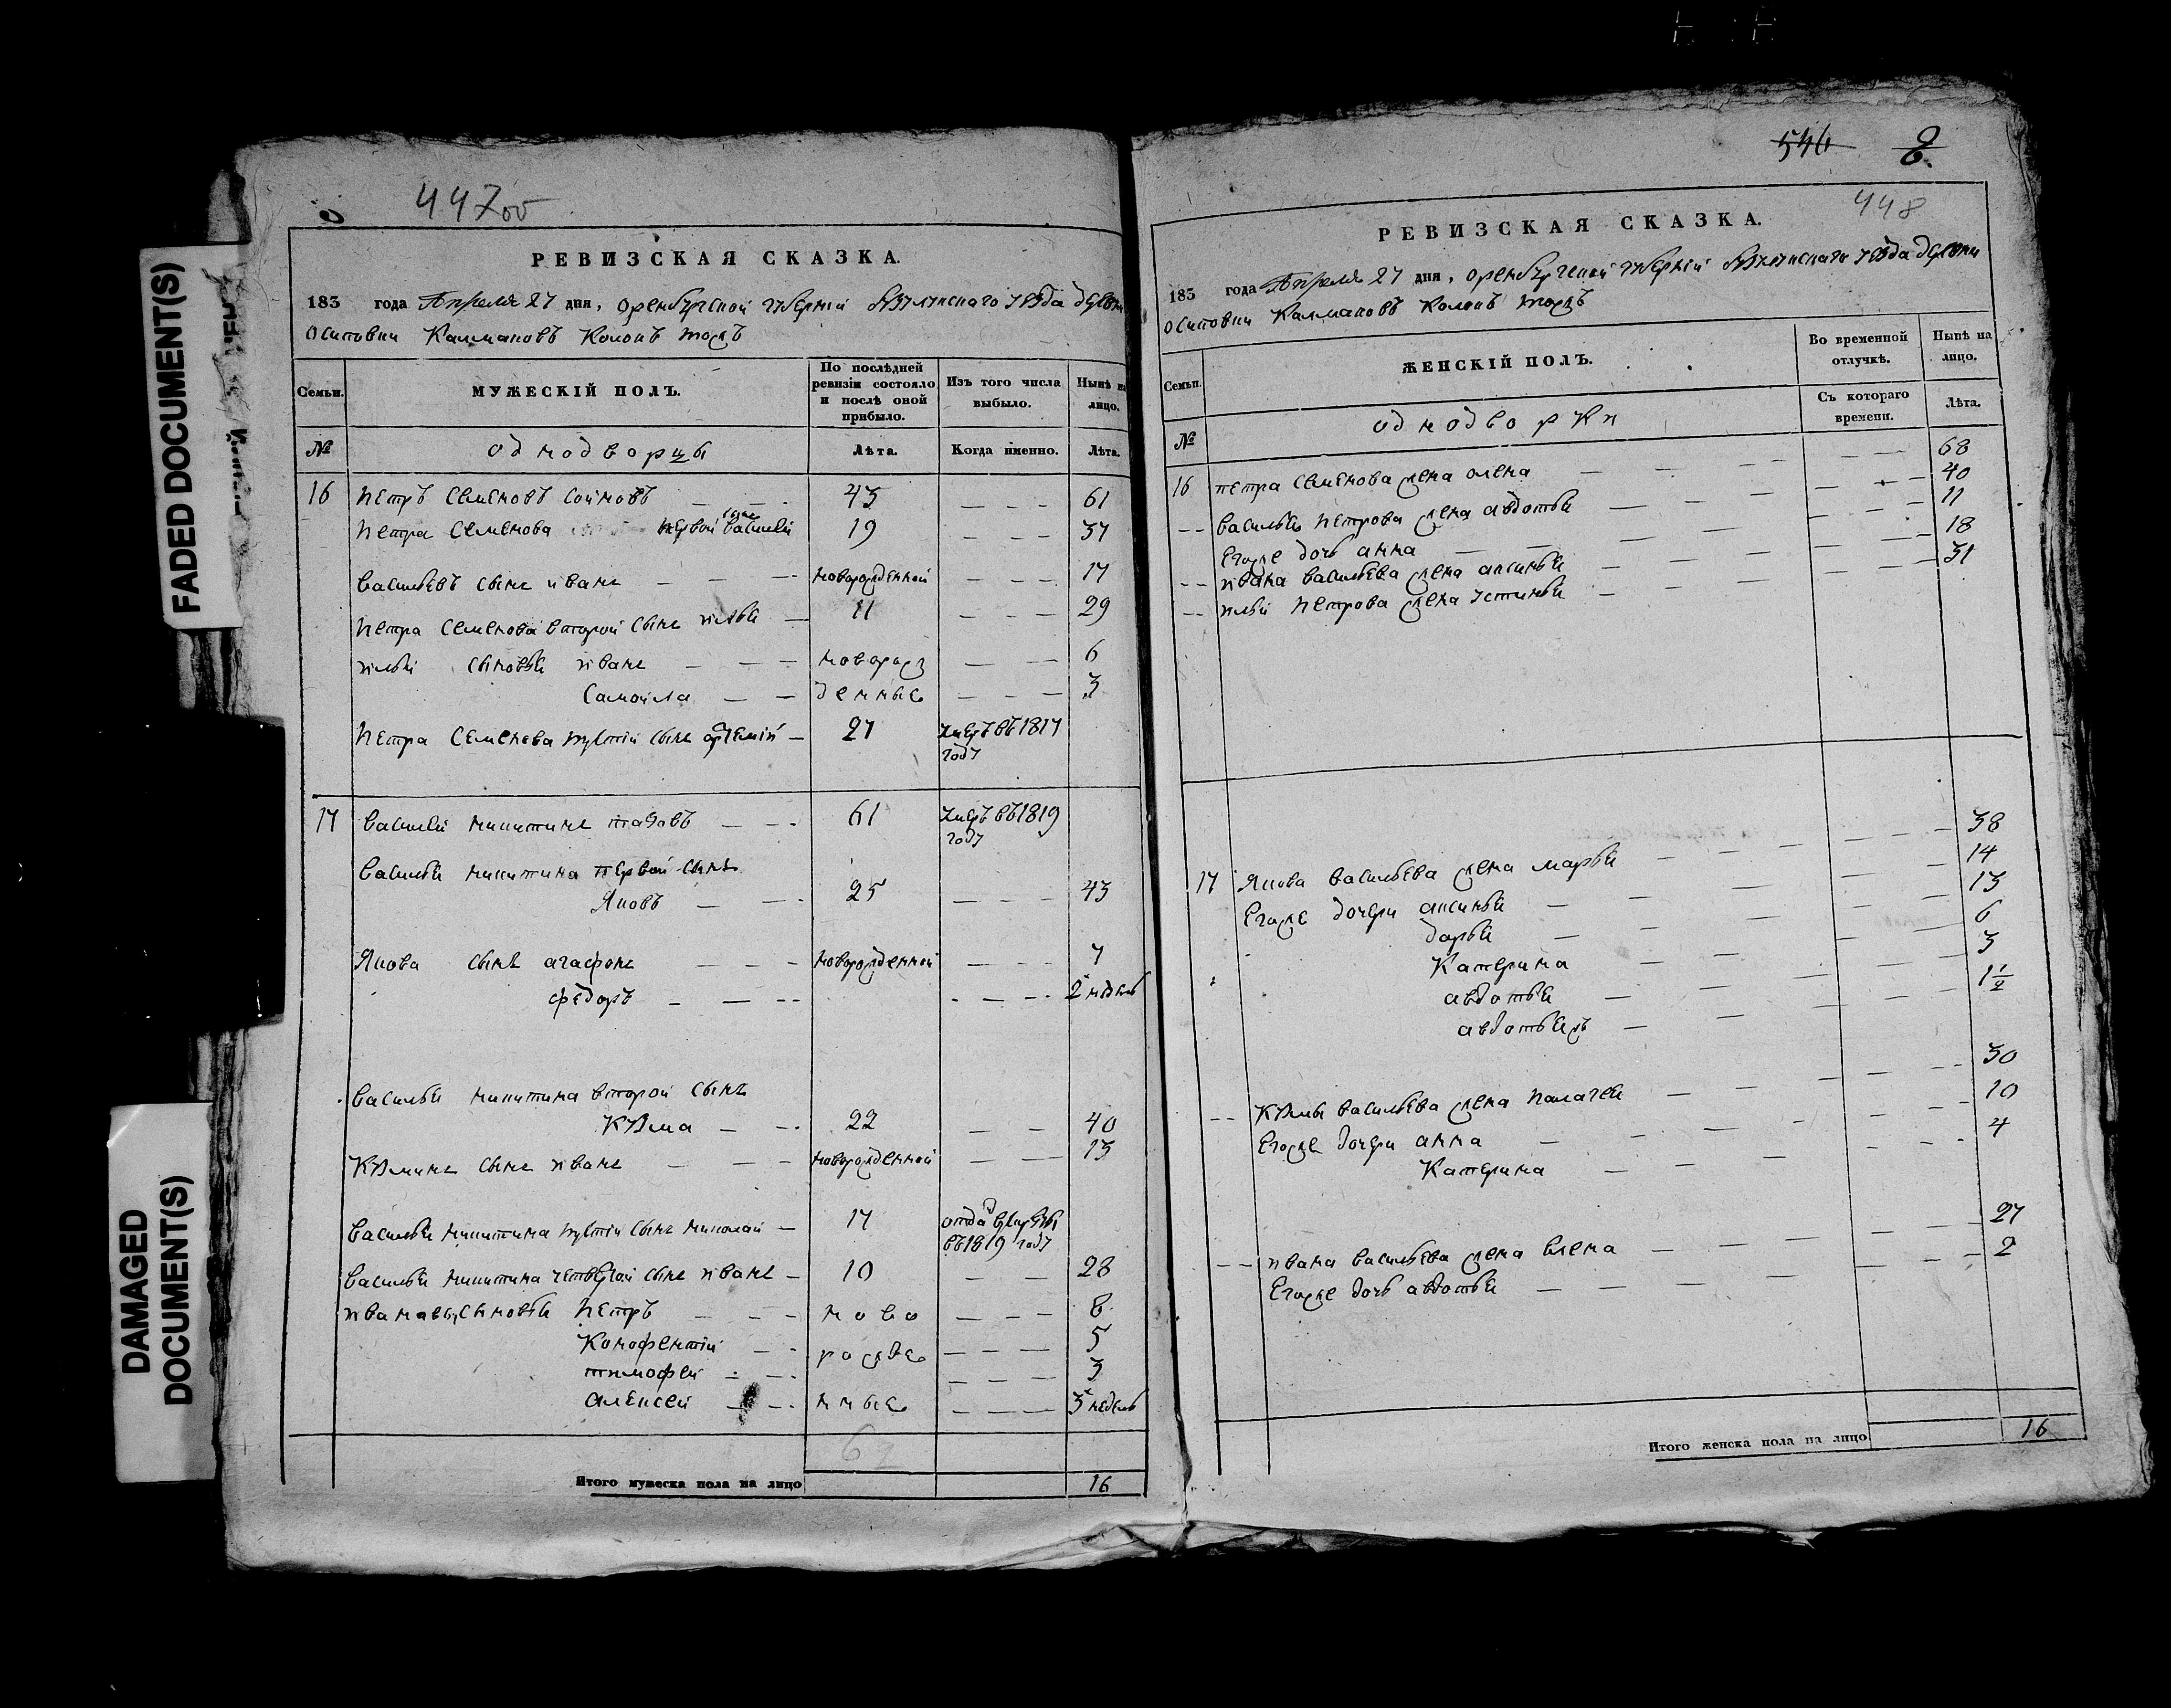 FADED DOCUMENT(S)
DAMAGED
DOCUMENT(S)
447об
РЕВИЗСКАЯ СКАЗКА.
183 года Апреля 27 дня, оренбургской губернии бузулукского уѣзда деревни
Осиповки Калмановъ Колокъ тожъ
Семьи.
МУЖЕСКІЙ ПОЛЪ.
По послѣдней ревизіи состояло и послѣ оной прибыло.
Изъ того числа выбыло.
Нынѣ на лицо.
№
однодворцы
Лѣта.
Когда именно.
Лѣта.
16 петръ семеновъ соимовъ — — 43 — — — 61
петра семенова первой сынъ василей 19 — — — 37
васильевъ сынъ иванъ — — — новорожденной — — — 17
петра семенова второй сынъ илья — 11 — — — 29
ильи сыновья иванъ — — — новорож — — — 6
самоила — — денные — — — 3
петра семенова третiй сынъ артемiй — 21 умеръ въ 1817
году
17 василей никитинъ — — 61 умеръ въ 1819
году
василья никитина первой сынъ
Яковъ — — 25 — — — 43
Якова сынъ агафонъ — — — новорожденной — — — 7
федоръ — — — — — — 2 недѣль
василья никитина второй сынъ
Кузма — — 22 — — 40
Кузминъ сынъ иванъ — — — новорожденной — — — 13
василья никитина третiй сынъ николай — 17 отда въ рекруты
въ 1819 году
василья никитина четвертой сынъ иванъ — 10 — — 28
ивановы сыновья петръ — — — ново — — — 8
Конофентiй — — рожде — — — 5
тимофей — — — — — 3
алексей — — нные — — — 3 недель
62
Итого мужеска пола на лицо 16
546 8.
448
РЕВИЗСКАЯ СКАЗКА.
183 года Апреля 27 дня, оренбургской губернiй бузулукскаго уѣзда деревни
осиповки Калмановъ Колокъ тожъ
Семьи.
ЖЕНСКІЙ ПОЛЪ.
Во временной отлучкѣ.
Нынѣ на лицо.
№
однодворки
Съ котораго времени.
Лѣта.
16 петра семенова жена олена — — — — 68
василья петрова жена авдотья — — — — 40
Егоже дочь анна — — — — 11
ивана васильева жена аксинья — — — — 18
ильи петрова жена устинья — — — — 31
17 Якова васильева жена марья — — — — 38
Егоже дочери аксинья — — — — 14
дарья — — — — 13
Катерина — — — — 6
авдотья — — — — 3
авдотьяжъ — — — — 1½
Кузмы васильева жена палагея — — — — 30
Егоже дочери анна — — — — 10
Катерина — — — — 4
ивана васильева жена Елена — — — — 27
Егоже дочь авдотья — — — — 2
Итого женска пола на лицо 16